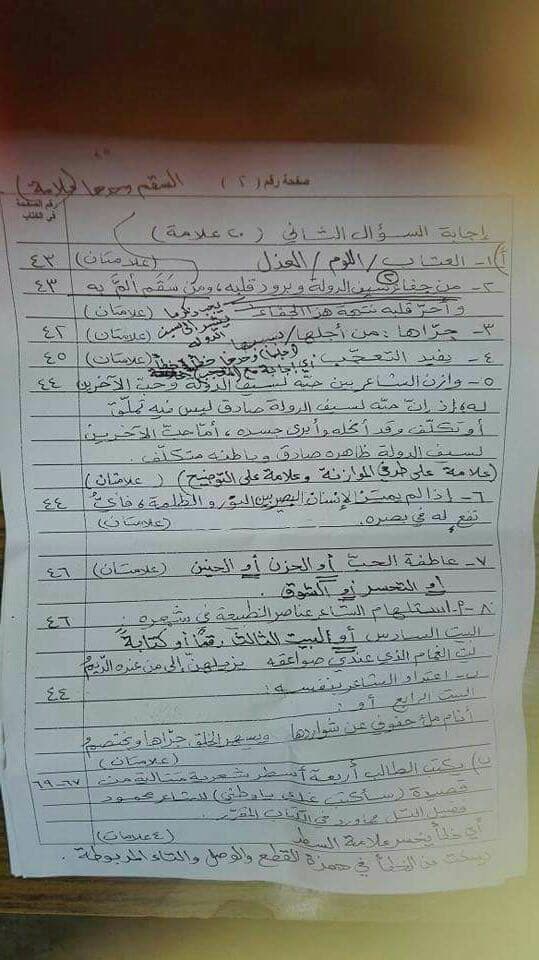 صفحة رقم (٢) السقم وحدها (علامة)
رقم الصفحة
في الكتاب
إجابة السؤال الثاني (٢٠ علامة)
أ) ١- العتاب / اللوم / العذل (علامتان) ٤٣
٢- من جفاء سيف الدولة وبرود قلبه، ومن سقم ألمّ به ٤٣
وأحرّ قلبه نتيجة هذا الجفاء (علامتان)
٣- جرّاها: من أجلها / بسببها (علامتان) ٤٢
٤- يفيد التعجب (علامتان) ٤٥
٥- وازن الشاعر بين حبّه لسيف الدولة وحبّ الآخرين ٤٤
له، إذ إنّ حبّه لسيف الدولة صادق ليس فيه تملّق
أو تكلّف وقد أنحله وأبرى جسده، أمّا حبّ الآخرين
لسيف الدولة ظاهره صادق وباطنه متكلّف.
(علامة على طرفي الموازنة وعلامة على التوضيح) (علامتان)
٦- إذا لم يميّز الإنسان البصير بين النور والظلمة، فأيّ ٤٤
نفع له في بصره. (علامتان)
٧- عاطفة الحبّ أو الحزن أو الحنين (علامتان) ٤٦
أو التحسر أو الشوق.
٨- أ- استلهام الشاعر عناصر الطبيعة في شعره: ٤٦
البيت السادس أو البيت الثالث رقمًا أو كتابةً
ليت الغمام الذي عندي صواعقه يزيلهنّ إلى من عنده الدّيم
ب- اعتداد الشاعر بنفسه: ٤٤
البيت الرابع أو:
أنام ملء جفوني عن شواردها ويسهر الخلق جرّاها ويختصم
(علامتان)
ب) يكتب الطالب أربعة أسطر شعرية متتالية من ٦٧-٦٩
قصيدة (سأكتب عنك يا وطني) للشاعر محمود
فضيل التل في الكتاب المقرر.
أي خطأ يخسر علامة السطر (٤ علامات)
من الخطأ في همزة القطع والوصل والتاء المربوطة.